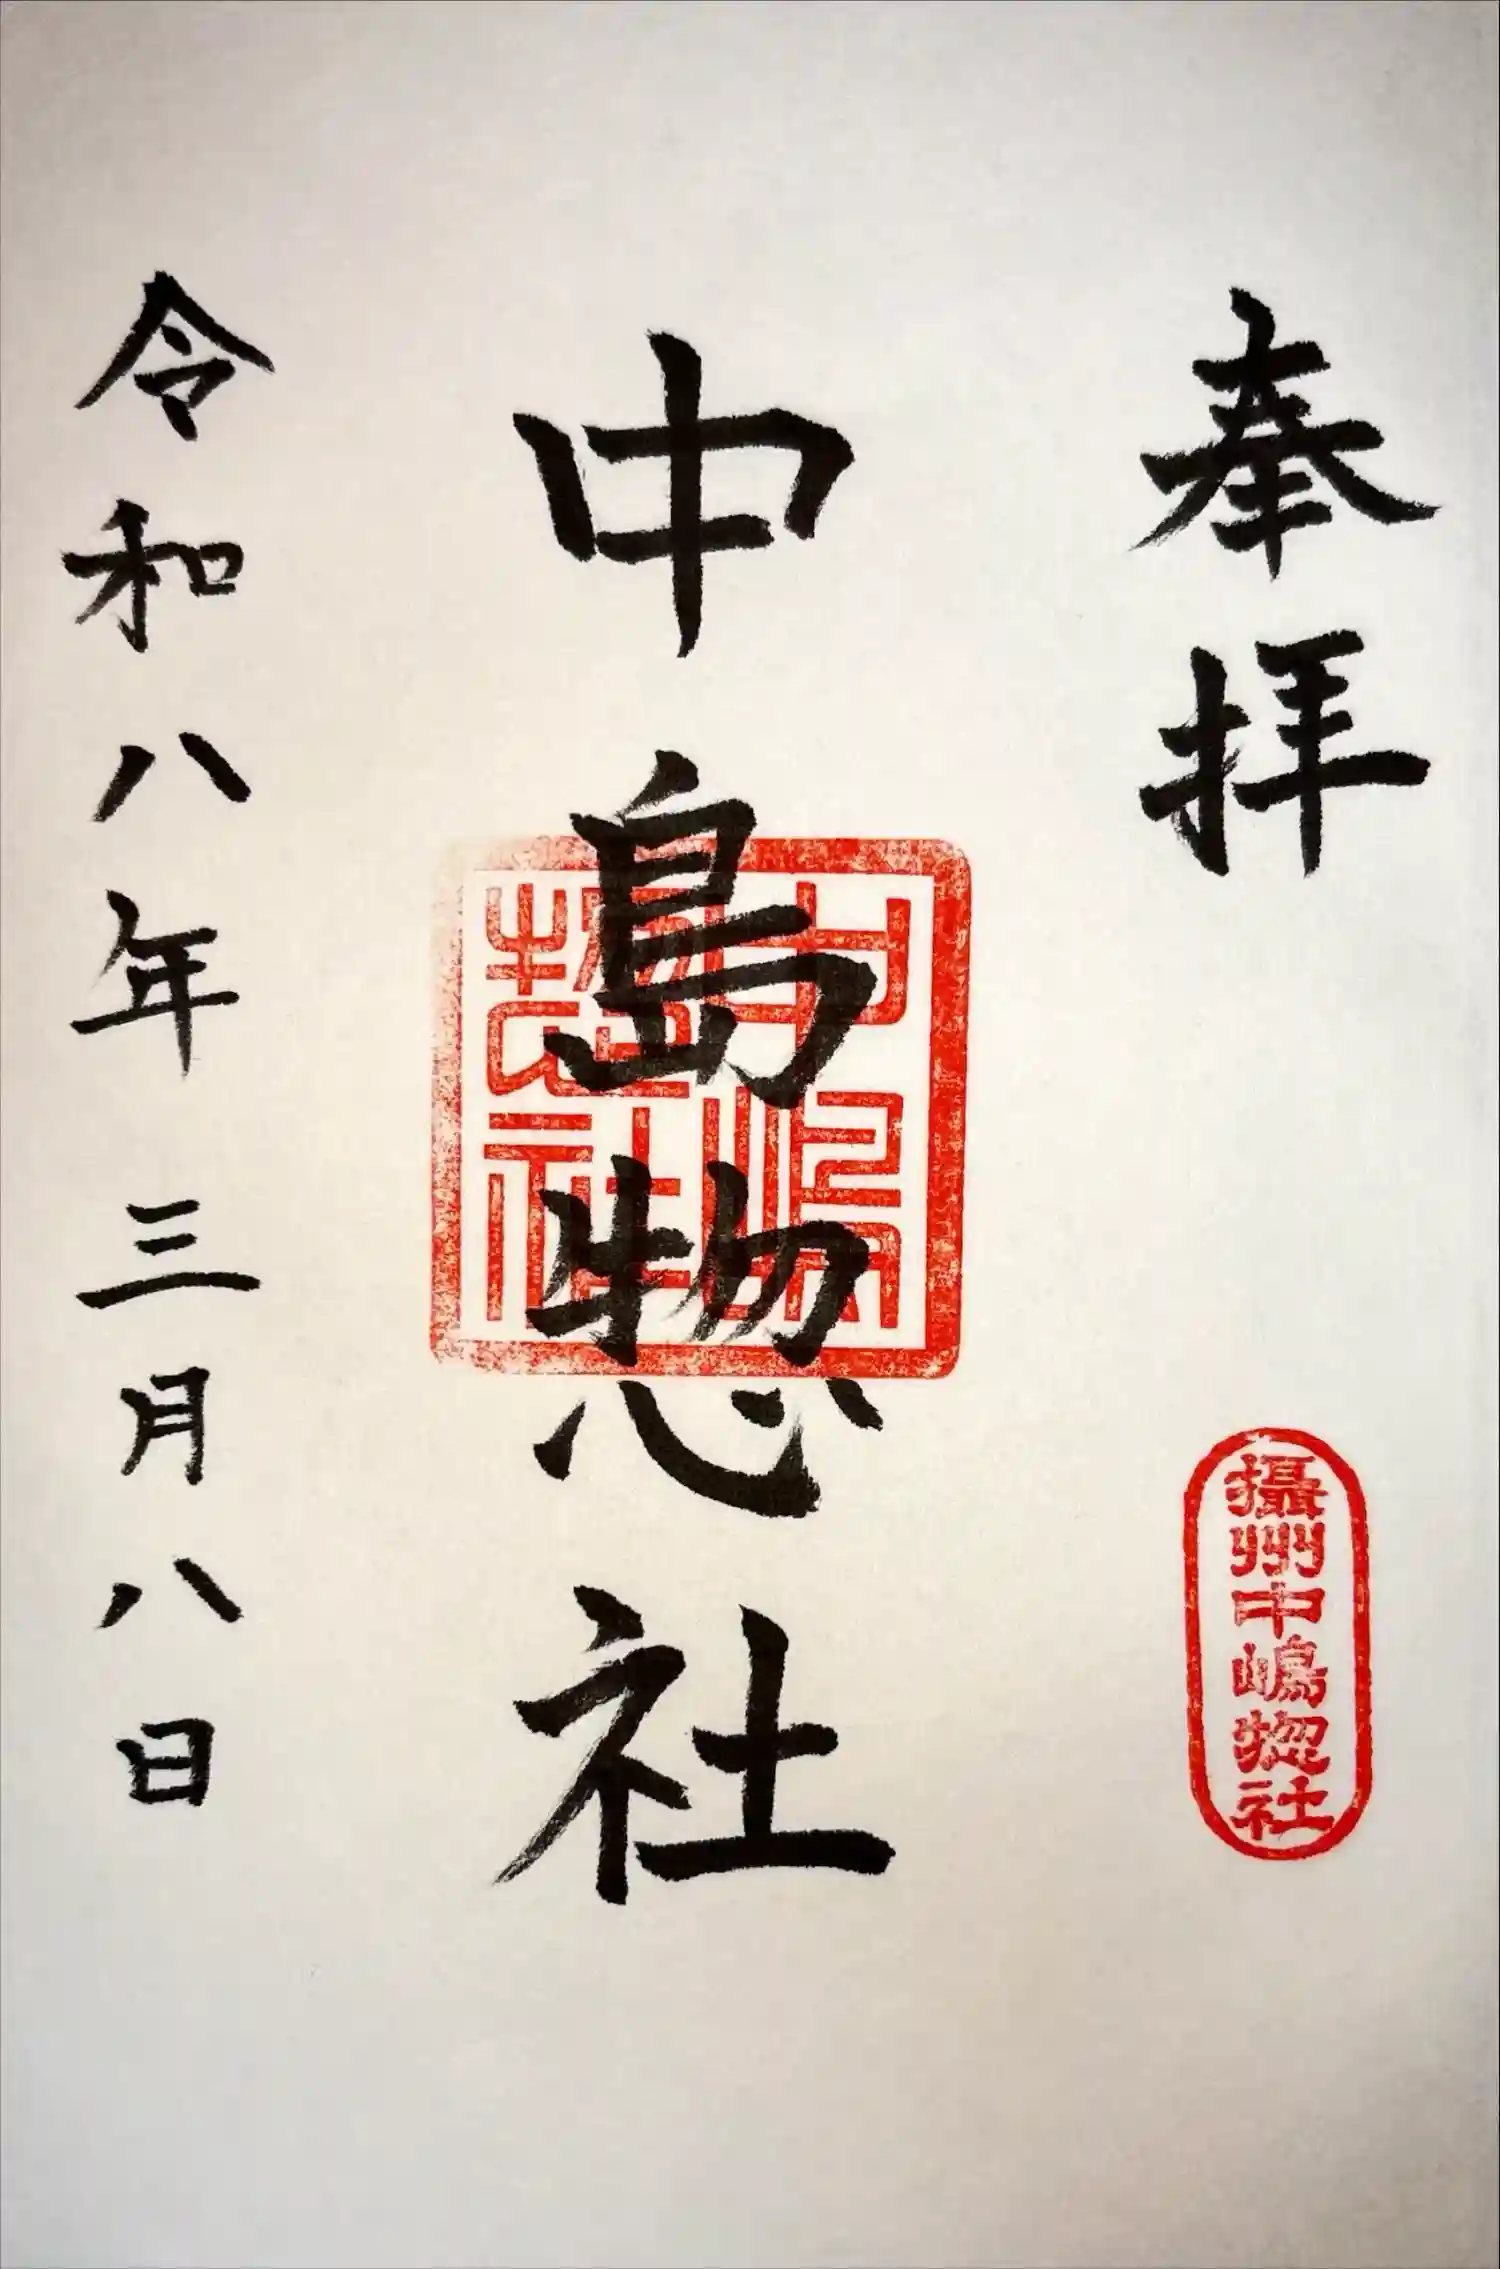 奉拝
攝州中嶋惣社
中島惣社
中嶋
惣社
令和八年三月八日